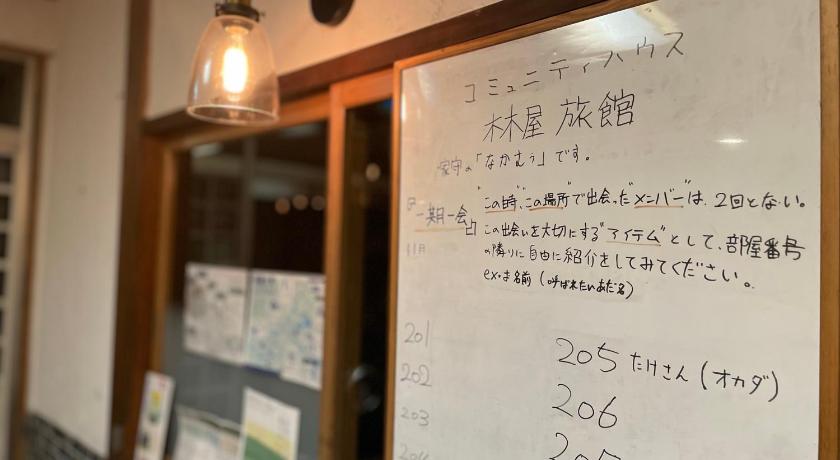 コミュニティハウス
林屋 旅館
家守の「なかむぅ」です。
"この時、この場所"で出会った"メンバー"は、2回とない。
一期一会
この出会いを大切にする"アイテム"として、部屋番号
の隣りに自由に紹介をしてみてください。
ex.お名前(呼ばれたいあだ名)
201
202
203
204
205 たけさん(オカダ)
206
207